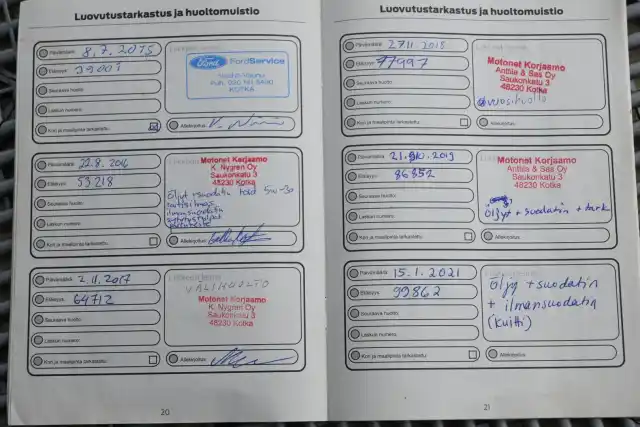 Luovutustarkastus ja huoltomuistio
Päivämäärä: 8.7.2015
Etäisyys: 39001
Seuraava huolto:
Laskun numero:
Kori ja maalipinta tarkastettu:
Ford FordService
KOTKA
Allekirjoitus:
Päivämäärä: 22.8.2016
Etäisyys: 53218
Seuraava huolto:
Laskun numero:
Kori ja maalipinta tarkastettu:
Motonet Korjaamo
K. Nygren Oy
Saukonkatu 3
48230 Kotka
Öljyt + suodatin
5w-30
raitisilma
ilmansuodatin
Allekirjoitus:
Päivämäärä: 2.11.2017
Etäisyys: 64712
Seuraava huolto:
Laskun numero:
Kori ja maalipinta tarkastettu:
VÄLIHUOLTO
Motonet Korjaamo
K. Nygren Oy
Saukonkatu 3
48230 Kotka
Allekirjoitus:
20
Luovutustarkastus ja huoltomuistio
Päivämäärä: 27.11.2018
Etäisyys: 77997
Seuraava huolto:
Laskun numero:
Kori ja maalipinta tarkastettu:
Motonet Korjaamo
Anttila & Sas Oy
Saukonkatu 3
48230 Kotka
vuosihuolto
Allekirjoitus:
Päivämäärä: 21.10.2019
Etäisyys: 86352
Seuraava huolto:
Laskun numero:
Kori ja maalipinta tarkastettu:
Motonet Korjaamo
Anttila & Sas Oy
Saukonkatu 3
48230 Kotka
Öljyt + suodatin + tark
Allekirjoitus:
Päivämäärä: 15.1.2021
Etäisyys: 99862
Seuraava huolto:
Laskun numero:
Kori ja maalipinta tarkastettu:
Öljy + suodatin
+ ilmansuodatin
(kuitti)
Allekirjoitus:
21